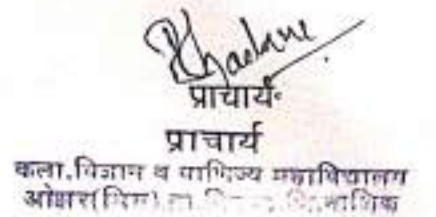 प्राचार्य
प्राचार्य
कला,विज्ञान व वाणिज्य महाविद्यालय
ओझर(मिग)